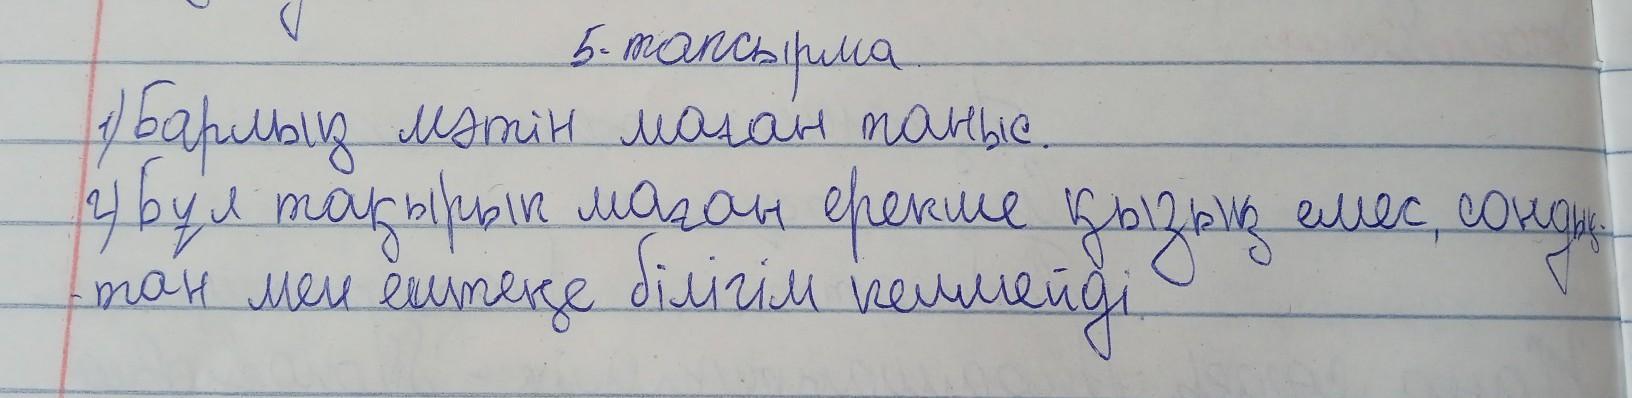 5-тапсырма
1) Барлық мәтін маған таныс.
2) Бұл тақырып маған ерекше қызық емес, сондық-
-тан мен ештеңе білігім келмейді